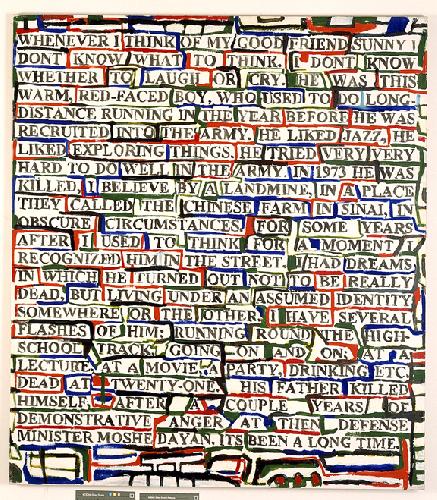 WHENEVER I THINK OF MY GOOD FRIEND SUNNY I
DONT KNOW WHAT TO THINK. I DONT KNOW
WHETHER TO LAUGH OR CRY. HE WAS THIS
WARM, RED-FACED BOY, WHO USED TO DO LONG
DISTANCE RUNNING IN THE YEAR BEFORE HE WAS
RECRUITED INTO THE ARMY. HE LIKED JAZZ, HE
LIKED EXPLORING THINGS, HE TRIED VERY VERY
HARD TO DO WELL IN THE ARMY. IN 1973 HE WAS
KILLED, I BELIEVE BY A LANDMINE, IN A PLACE
THEY CALLED THE CHINESE FARM IN SINAI, IN
OBSCURE CIRCUMSTANCES. FOR SOME YEARS
AFTER I USED TO THINK FOR A MOMENT I
RECOGNIZED HIM IN THE STREET. I HAD DREAMS
IN WHICH HE TURNED OUT NOT TO BE REALLY
DEAD, BUT LIVING UNDER AN ASSUMED IDENTITY
SOMEWHERE OR THE OTHER. I HAVE SEVERAL
FLASHES OF HIM: RUNNING ROUND THE HIGH-
SCHOOL TRACK, GOING ON AND ON; AT A
LECTURE, AT A MOVIE, A PARTY, DRINKING ETC.
DEAD AT TWENTY-ONE. HIS FATHER KILLED
HIMSELF AFTER A COUPLE YEARS OF
DEMONSTRATIVE ANGER AT THEN DEFENSE
MINISTER MOSHE DAYAN. ITS BEEN A LONG TIME.